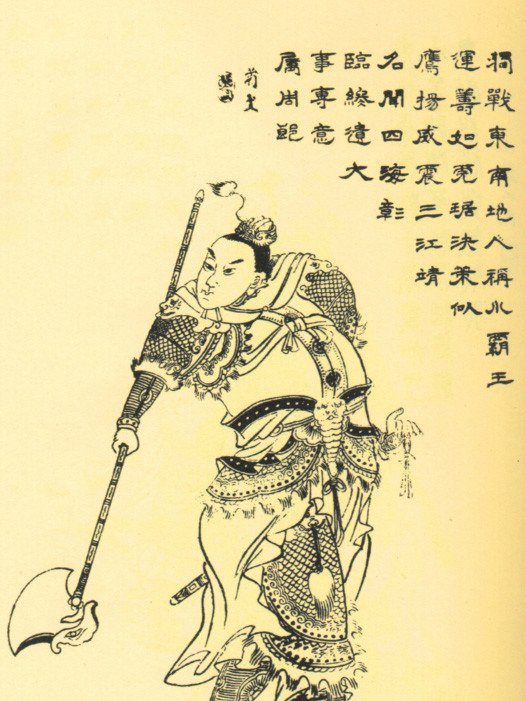 獨戰東南地人稱小霸王
運籌如虎踞決策似
鷹揚威震三江靖
名聞四海彰
臨終遺大
事專意
屬周郎